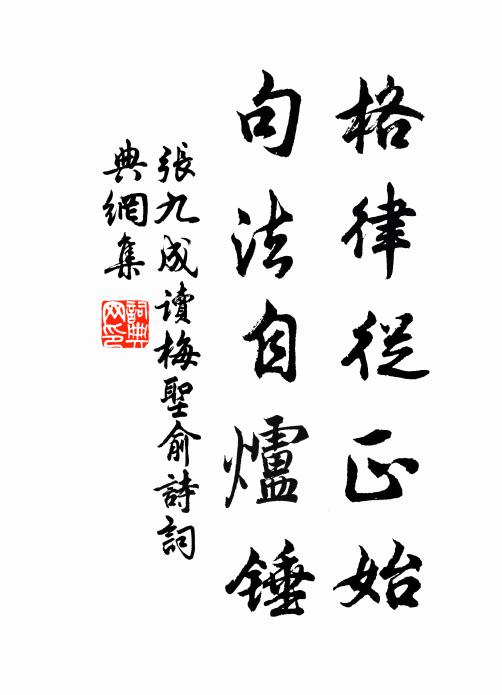 格律從正始
句法自爐錘
張九成讀梅聖俞詩詞
典網集
詞典
网印